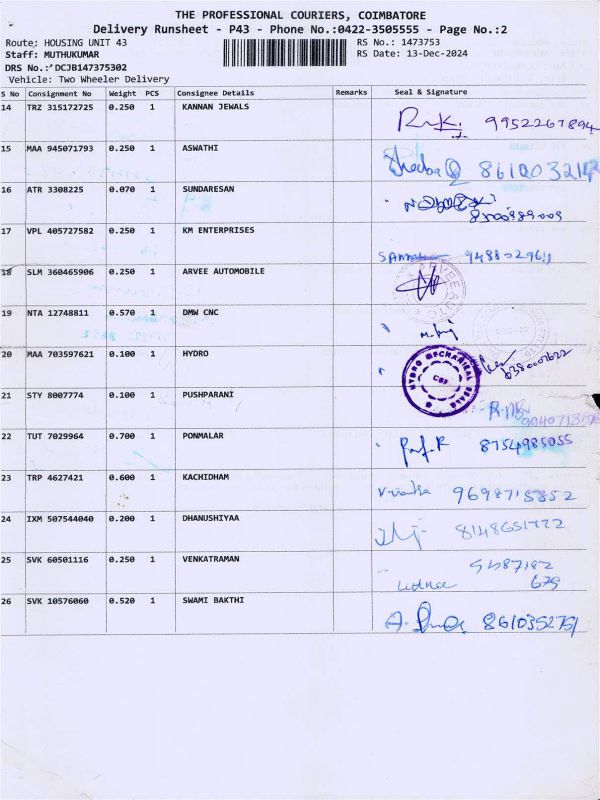 THE PROFESSIONAL COURIERS, COIMBATORE
Delivery Runsheet - P43 - Phone No.:0422-3505555 - Page No.:2
Route: HOUSING UNIT 43
RS No.: 1473753
Staff: MUTHUKUMAR
RS Date: 13-Dec-2024
DRS No.: DCJB147375302
Vehicle: Two Wheeler Delivery
S No Consignment No Weight PCS Consignee Details Remarks Seal & Signature
14 TRZ 315172725 0.250 1 KANNAN JEWALS 9952267894
15 MAA 945071793 0.250 1 ASWATHI
16 ATR 3308225 0.070 1 SUNDARESAN
17 VPL 405727582 0.250 1 KM ENTERPRISES
18 SLM 360465906 0.250 1 ARVEE AUTOMOBILE ARVEE AUTO
19 NTA 12748811 0.570 1 DMW CNC
20 MAA 703597621 0.100 1 HYDRO HYDRO MECHANICAL SEALS CBE
21 STY 8007774 0.100 1 PUSHPARANI
22 TUT 7029964 0.700 1 PONMALAR 8754985055
23 TRP 4627421 0.600 1 KACHIDHAM
24 IXM 507544040 0.200 1 DHANUSHIYAA
25 SVK 60501116 0.250 1 VENKATRAMAN
26 SVK 10576060 0.520 1 SWAMI BAKTHI